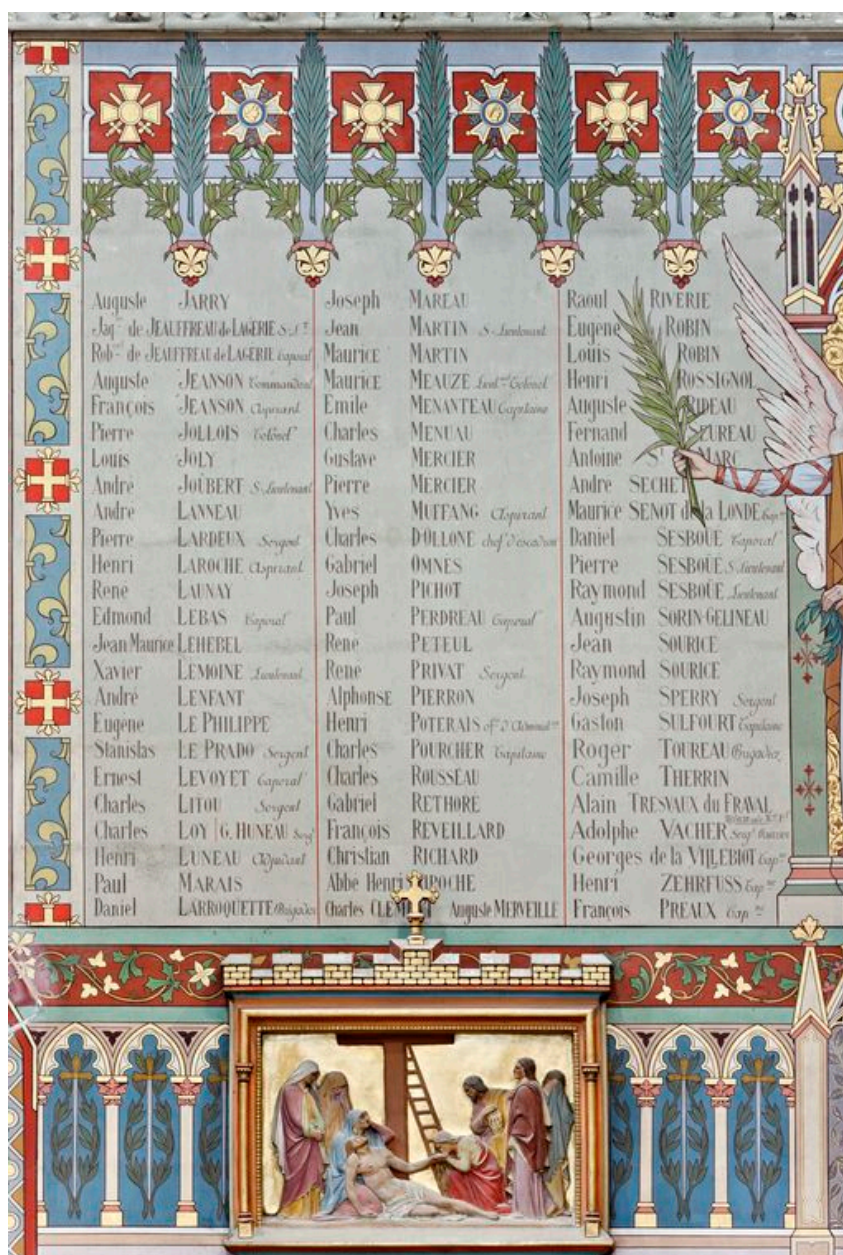 Auguste JARRY
Jaq. de JEAUFFREAU de LAGERIE S-Lt
Rob. de JEAUFFREAU de LAGERIE Caporal
Auguste JEANSON Commandant
François JEANSON Aspirant
Pierre JOLLOIS Colonel
Louis JOLY
André JOÜBERT S-Lieutenant
André LANNEAU
Pierre LARDEUX Sergent
Henri LAROCHE Aspirant
René LAUNAY
Edmond LEBAS Caporal
Jean Maurice LEHEBEL
Xavier LEMOINE Lieutenant
André LENFANT
Eugène LE PHILIPPE
Stanislas LE PRADO Sergent
Ernest LEVOYET Caporal
Charles LITOU Sergent
Charles LOY G. HUNEAU Sergt
Henri LUNEAU Adjudant
Paul MARAIS
Daniel LARROQUETTE Brigadier
Joseph MAREAU
Jean MARTIN S-Lieutenant
Maurice MARTIN
Maurice MEAUZE Lieut.nt Colonel
Emile MENANTEAU Capitaine
Charles MENUAU
Gustave MERCIER
Pierre MERCIER
Yves MUFFANG Aspirant
Charles D'OLLONE chef d'escadron
Gabriel OMNES
Joseph PICHOT
Paul PERDREAU Caporal
René PETEUL
René PRIVAT Sergent
Alphonse PIERRON
Henri POTERAIS
Charles POURCHER Capitaine
Charles ROUSSEAU
Gabriel RETHORE
François REVEILLARD
Christian RICHARD
Abbé Henri
Charles Auguste MERVEILLE
Raoul RIVERIE
Eugène ROBIN
Louis ROBIN
Henri ROSSIGNOL
Auguste
Fernand
Antoine MARC
André SECHET
Maurice SENOT de la LONDE Cap.ne
Daniel SESBOÜE Caporal
Pierre SESBOÜE S-Lieutenant
Raymond SESBOÜE Lieutenant
Augustin SORIN-GELINEAU
Jean SOURICE
Raymond SOURICE
Joseph SPERRY Sergent
Gaston SULFOURT Capitaine
Roger TOUREAU Brigadier
Camille THERRIN
Alain TRESVAUX du FRAVAL
Adolphe VACHER
Georges de la VILLEBIOT Cap.ne
Henri ZEHRFUSS Cap.ne
François PREAUX Cap.ne